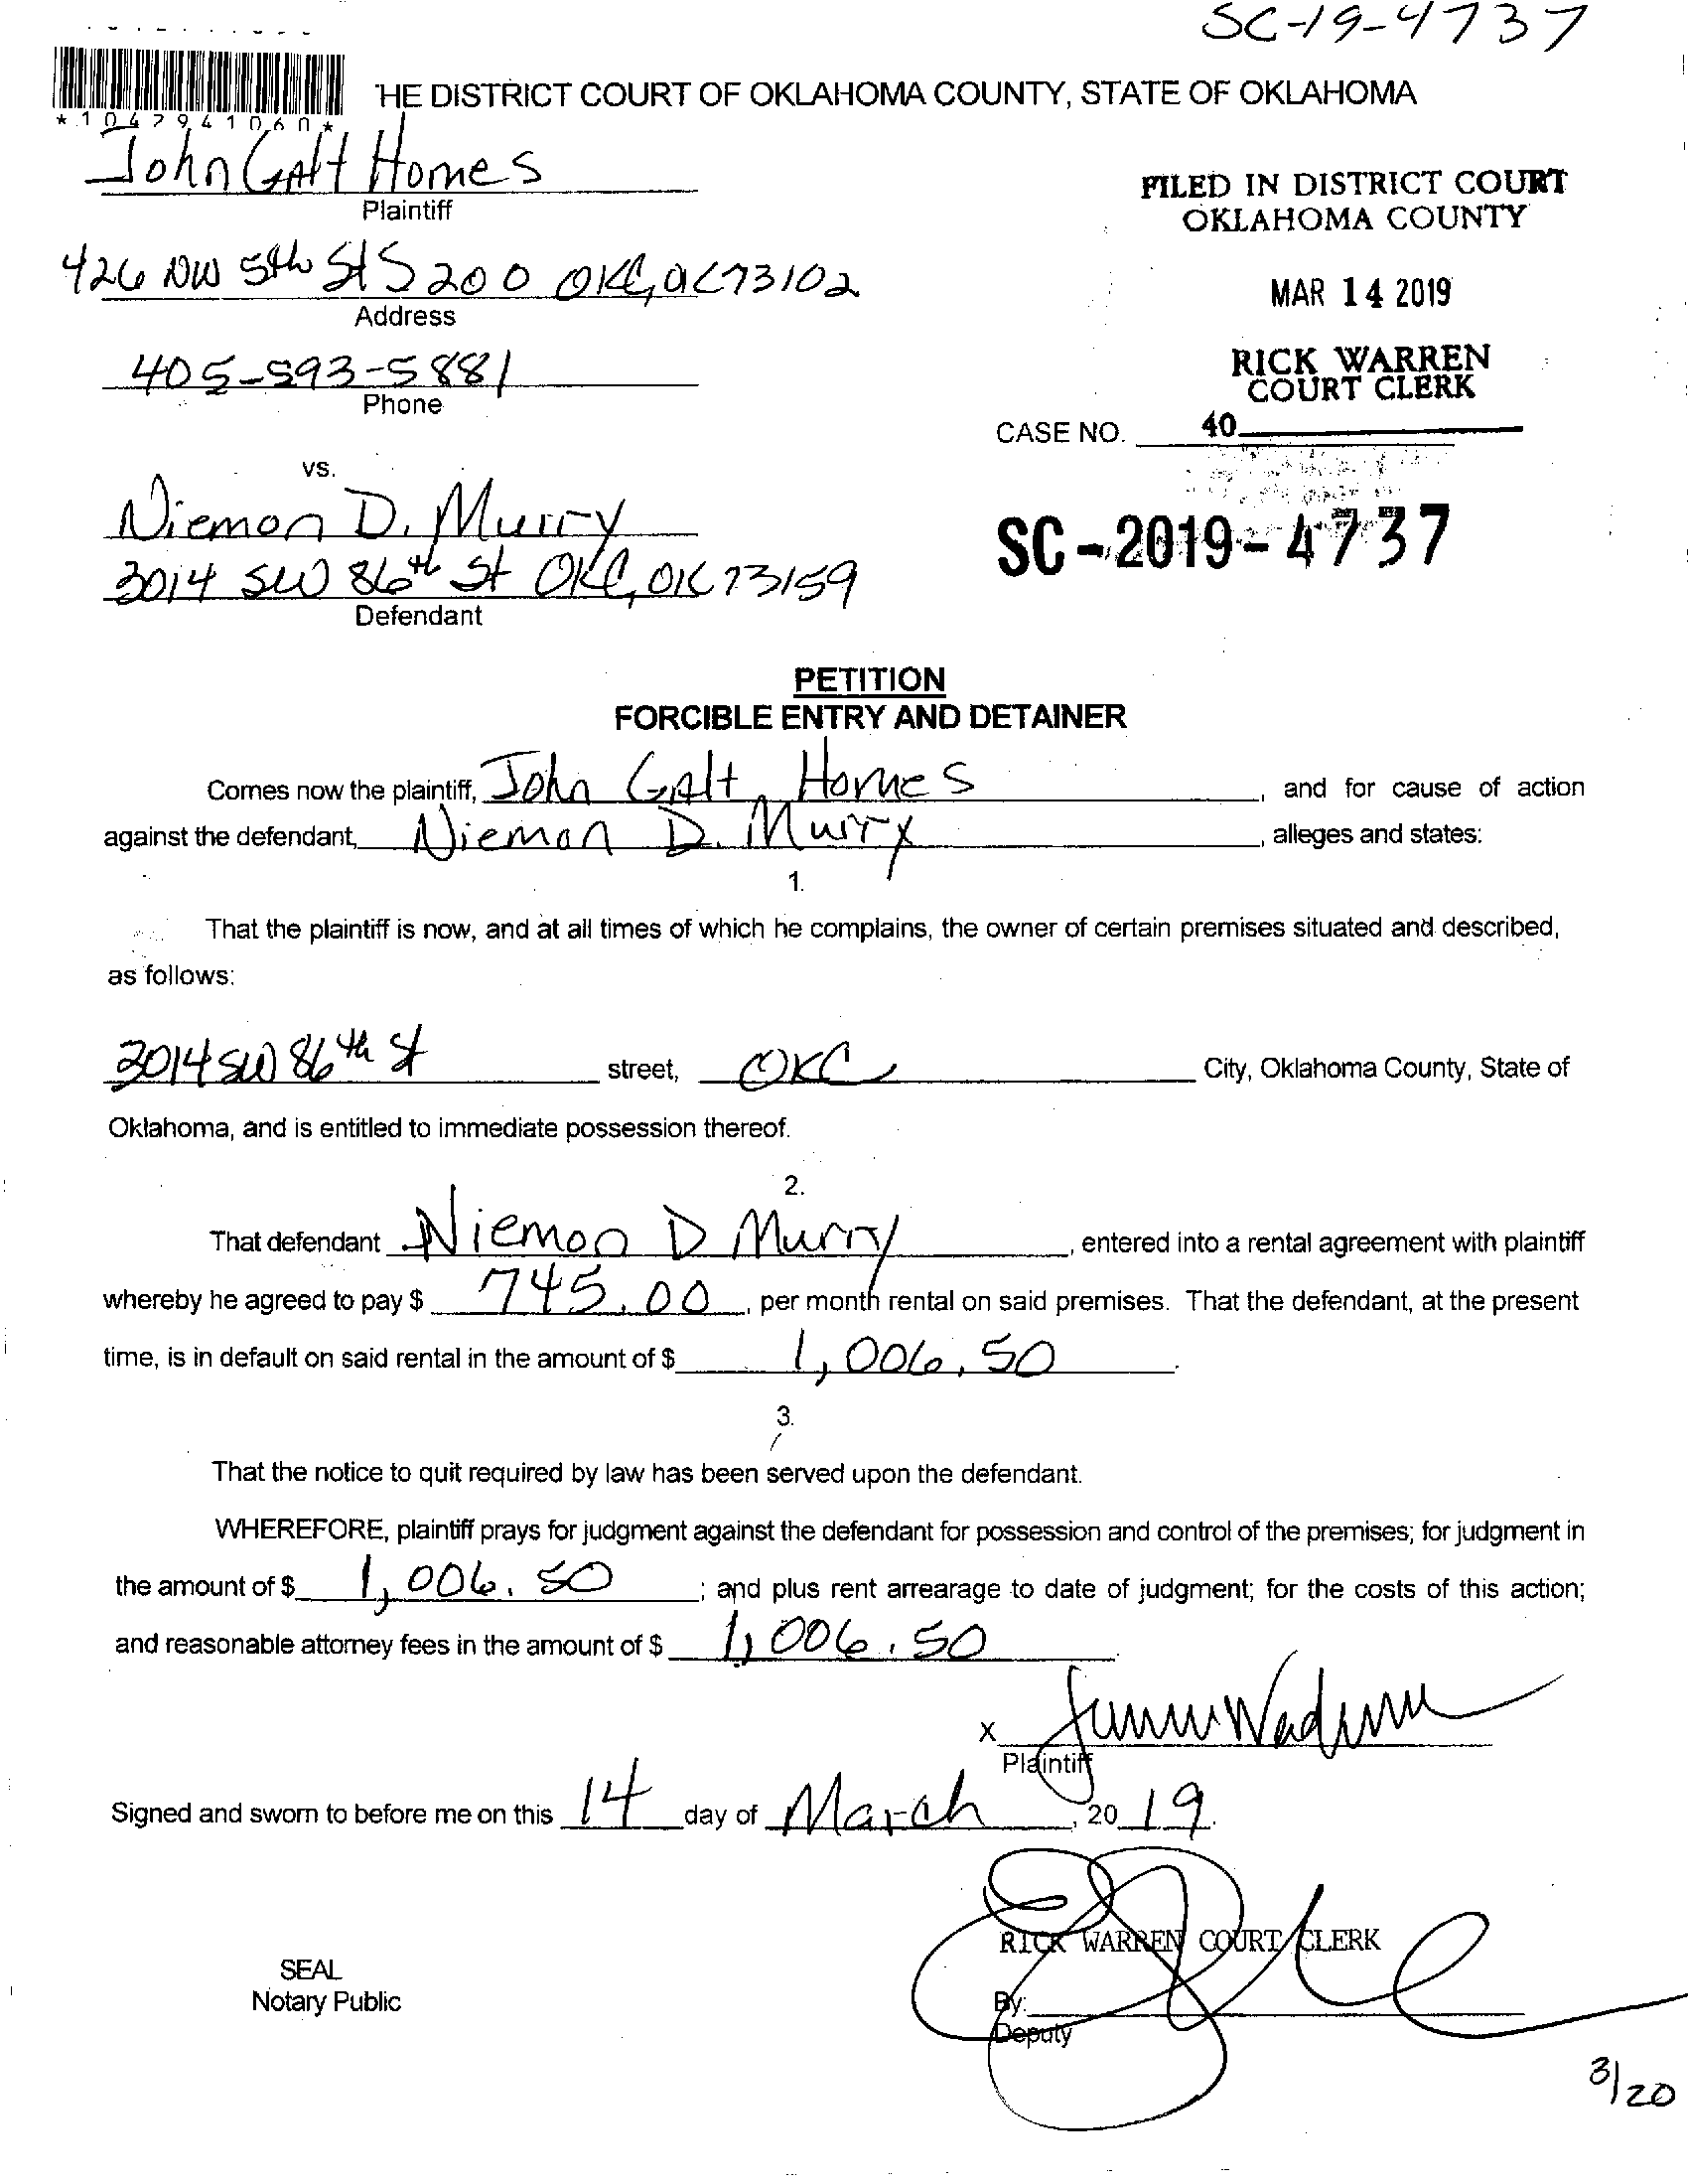 SC-19-4737
HE DISTRICT COURT OF OKLAHOMA COUNTY, STATE OF OKLAHOMA
*1047941060*
John Galt Homes
Plaintiff
FILED IN DISTRICT COURT
OKLAHOMA COUNTY
426 NW 5th St S 200 OKC, OK 73102
Address
MAR 14 2019
405-593-5881
Phone
RICK WARREN
COURT CLERK
CASE NO. 40
vs.
Niemon D. Murry
SC-2019-4737
3014 SW 86th St OKC, OK 73159
Defendant
PETITION
FORCIBLE ENTRY AND DETAINER
Comes now the plaintiff, John Galt Homes, and for cause of action
against the defendant, Niemon D. Murry, alleges and states:
1.
That the plaintiff is now, and at all times of which he complains, the owner of certain premises situated and described,
as follows:
3014 SW 86th St street, OKC City, Oklahoma County, State of
Oklahoma, and is entitled to immediate possession thereof.
2.
That defendant Niemon D Murry, entered into a rental agreement with plaintiff
whereby he agreed to pay $ 745.00, per month rental on said premises. That the defendant, at the present
time, is in default on said rental in the amount of $ 1,006.50.
3.
That the notice to quit required by law has been served upon the defendant.
WHEREFORE, plaintiff prays for judgment against the defendant for possession and control of the premises; for judgment in
the amount of $ 1,006.50; and plus rent arrearage to date of judgment; for the costs of this action;
and reasonable attorney fees in the amount of $ 1,006.50.
X
Plaintiff
Signed and sworn to before me on this 14 day of March, 20 19.
RICK WARREN COURT CLERK
SEAL
Notary Public
By:
Deputy
3/20